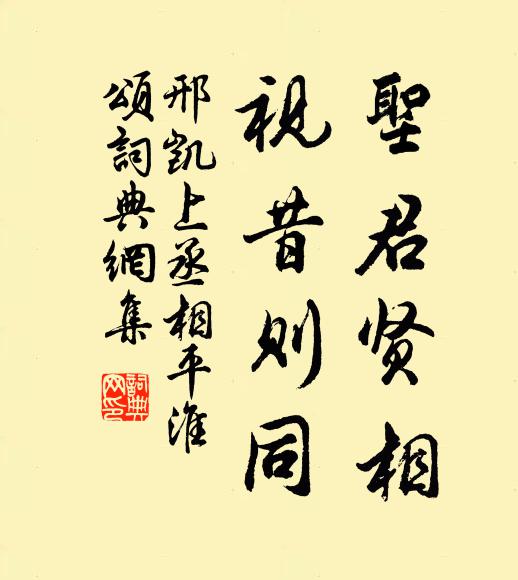 聖君贤相
視昔则同
邢凱上丞相平淮
頌詞典網集
詞典网印